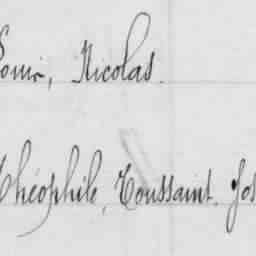 Louis, Nicolas.
Théophile, Toussaint, Jos